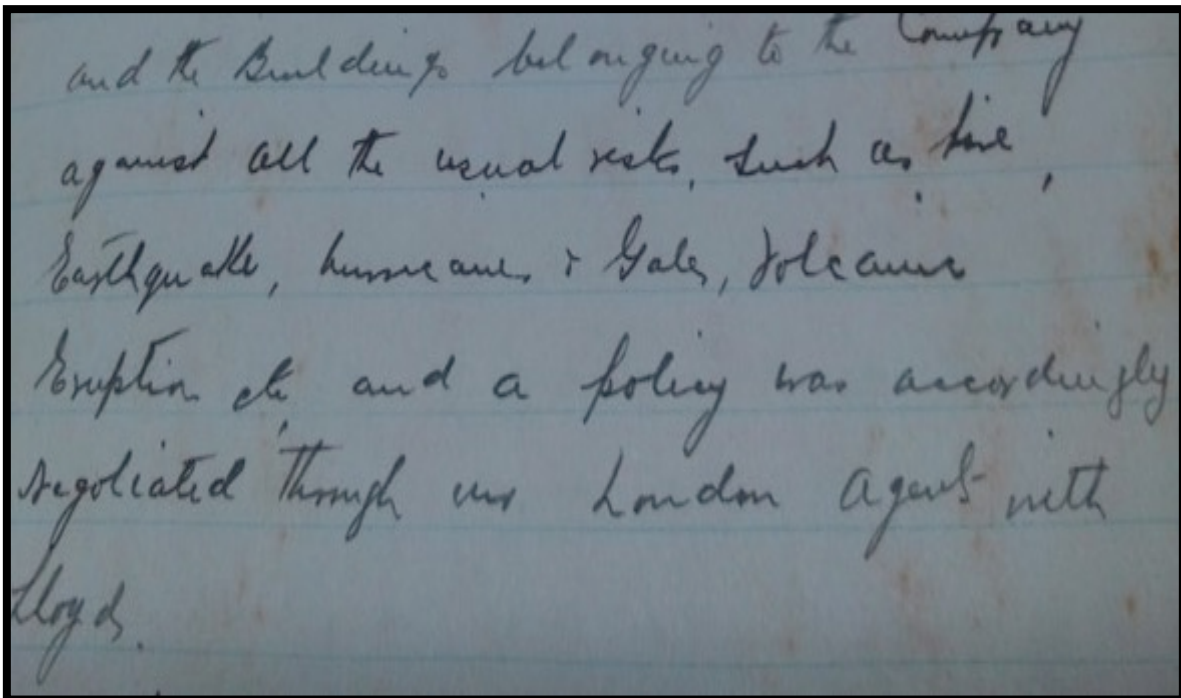 and the Buildings belonging to the Company
against all the usual risks, such as fire,
Earthquake, hurricanes & Gales, Volcanic
Eruption etc, and a policy was accordingly
negotiated through our London Agents with
Lloyds.